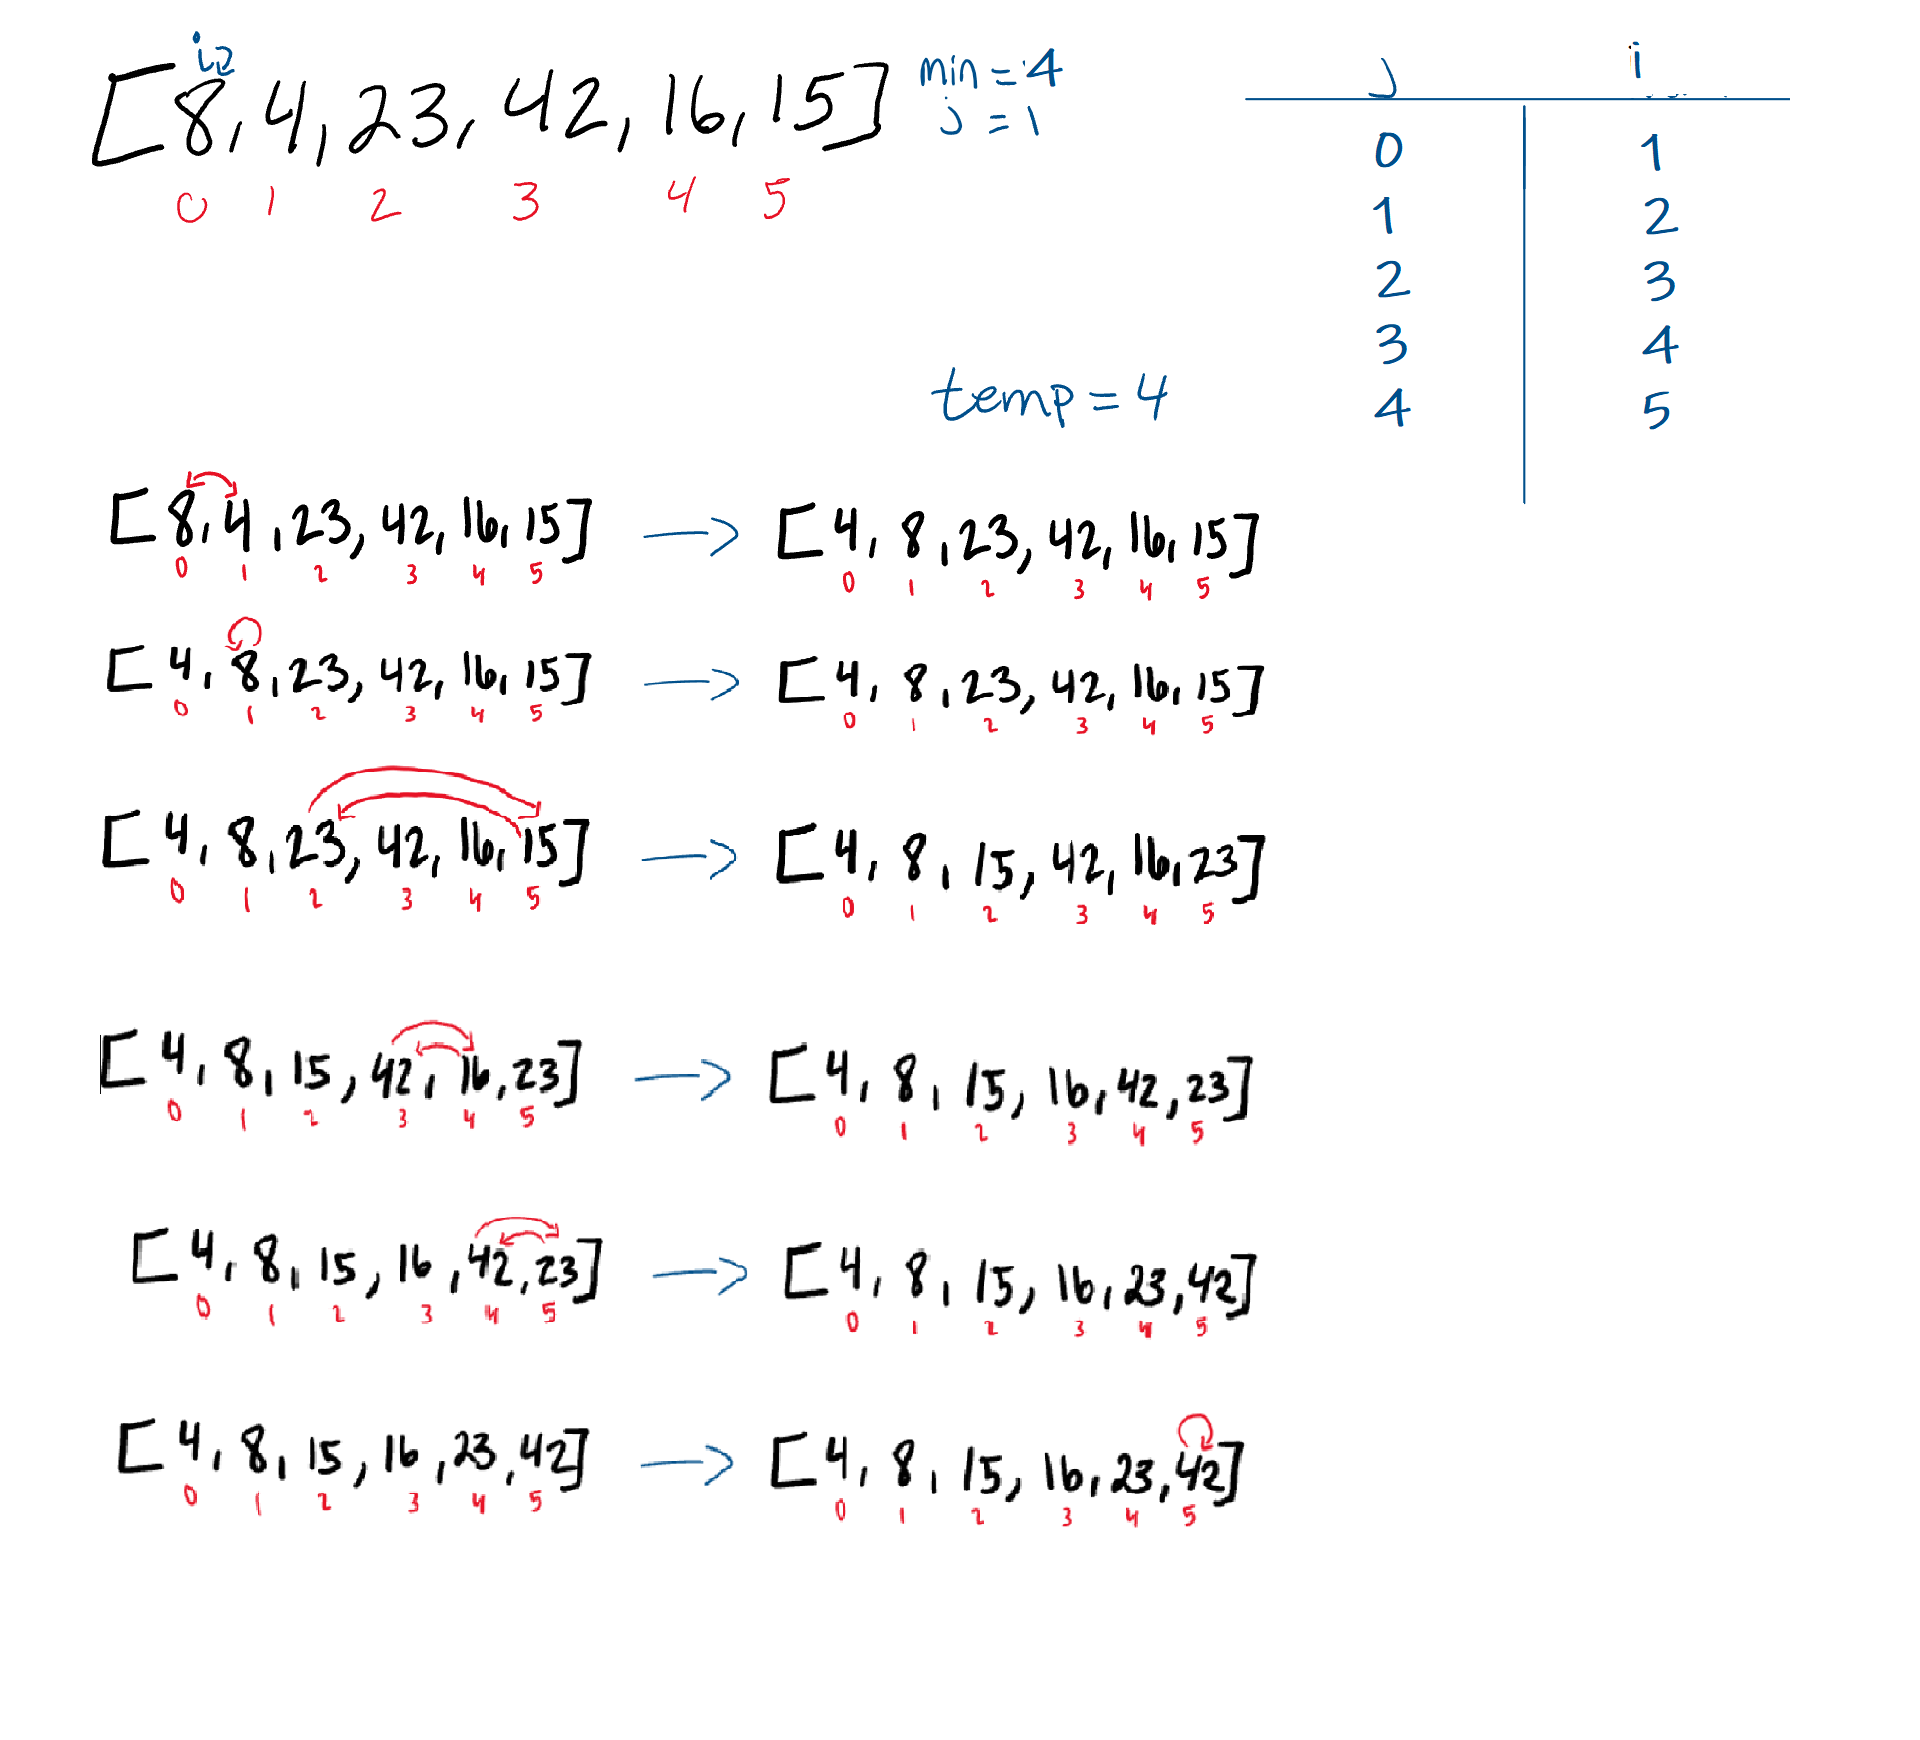 i
[8, 4, 23, 42, 16, 15] min = 4
j = 1
0 1 2 3 4 5
j i
0 1
1 2
2 3
3 4
4 5
temp = 4
[8, 4, 23, 42, 16, 15] → [4, 8, 23, 42, 16, 15]
0 1 2 3 4 5 0 1 2 3 4 5
[4, 8, 23, 42, 16, 15] → [4, 8, 23, 42, 16, 15]
0 1 2 3 4 5 0 1 2 3 4 5
[4, 8, 23, 42, 16, 15] → [4, 8, 15, 42, 16, 23]
0 1 2 3 4 5 0 1 2 3 4 5
[4, 8, 15, 42, 16, 23] → [4, 8, 15, 16, 42, 23]
0 1 2 3 4 5 0 1 2 3 4 5
[4, 8, 15, 16, 42, 23] → [4, 8, 15, 16, 23, 42]
0 1 2 3 4 5 0 1 2 3 4 5
[4, 8, 15, 16, 23, 42] → [4, 8, 15, 16, 23, 42]
0 1 2 3 4 5 0 1 2 3 4 5